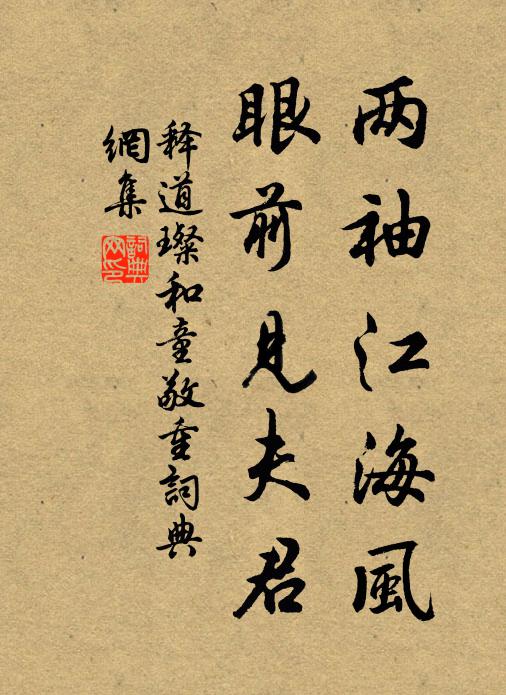 两袖江海風
眼前見夫君
释道璨和童敬重詞典
網集
詞典网印